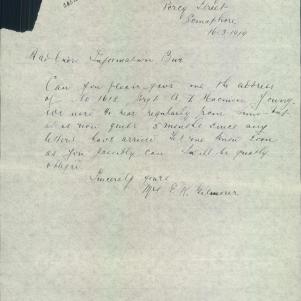 Percy Street
Semaphore
16-3-1919
Information Bur
Can you please give me the address
of No 1612 Sgt A. I.
we were to hear regularly from him but
it is now quite 3 months since any
letters have arrived. Let me know soon
as you possibly can I will be greatly
oblige
Sincerely yours
Mrs E. W. Gilmour